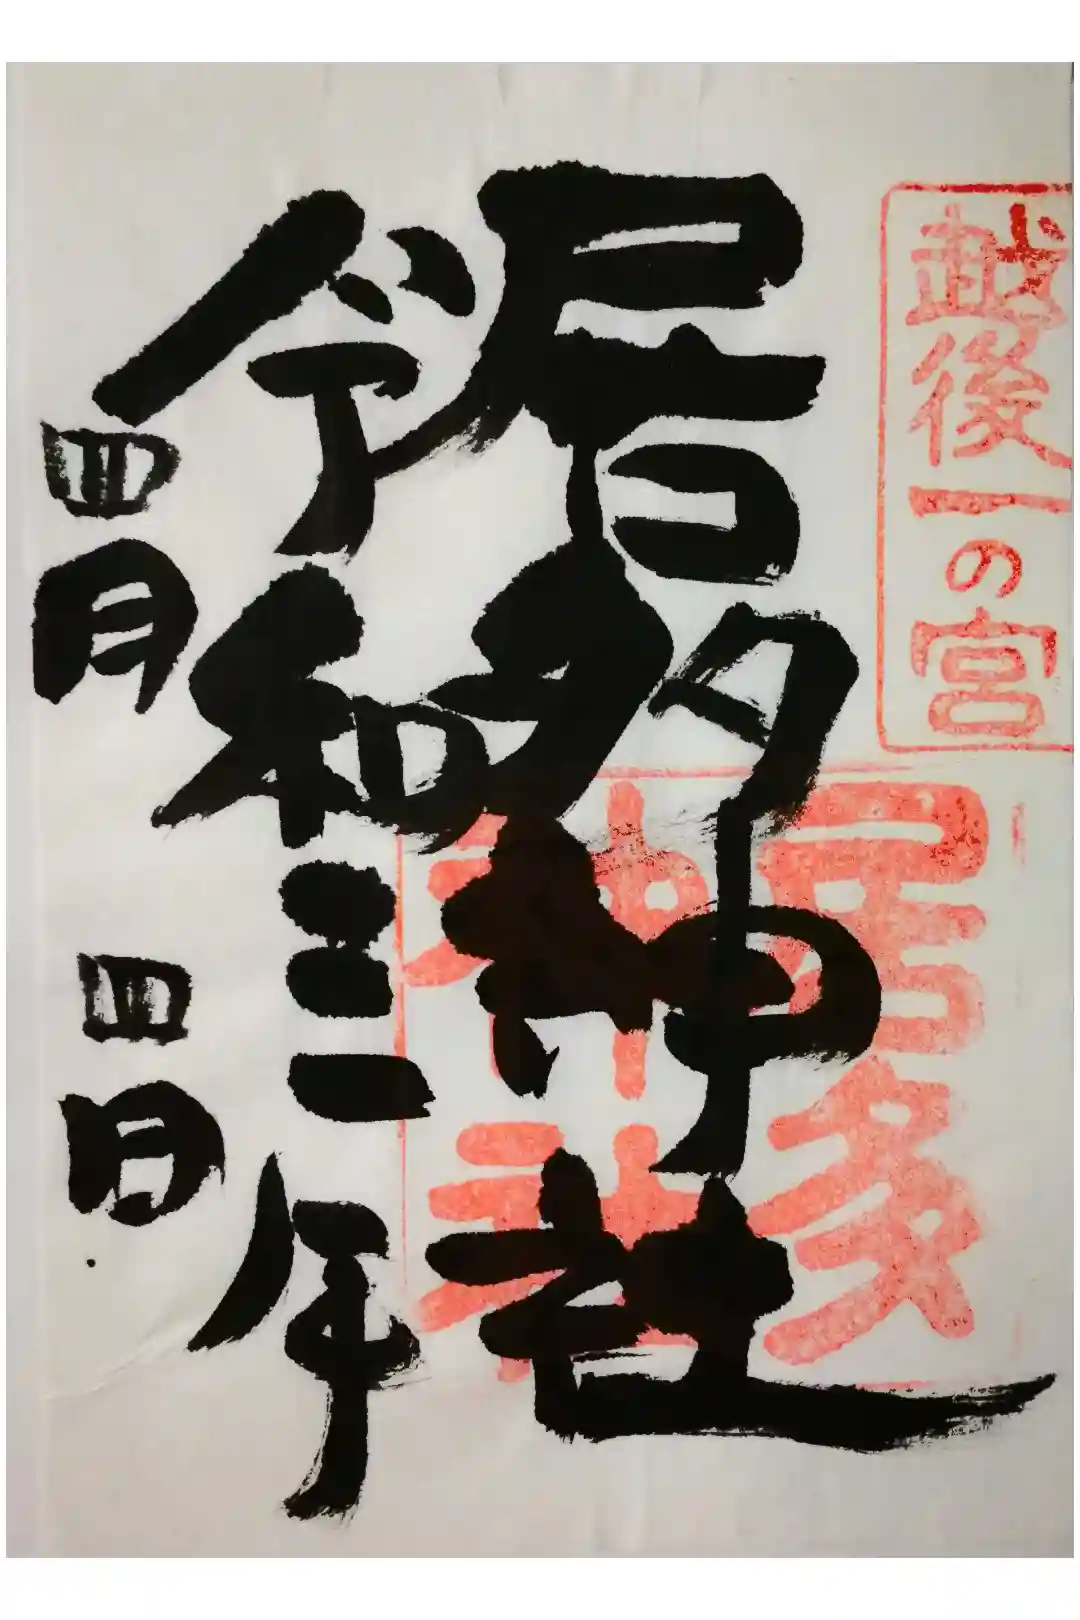 越後一の宮
居多神社
居多神社
令和三年
四月四日